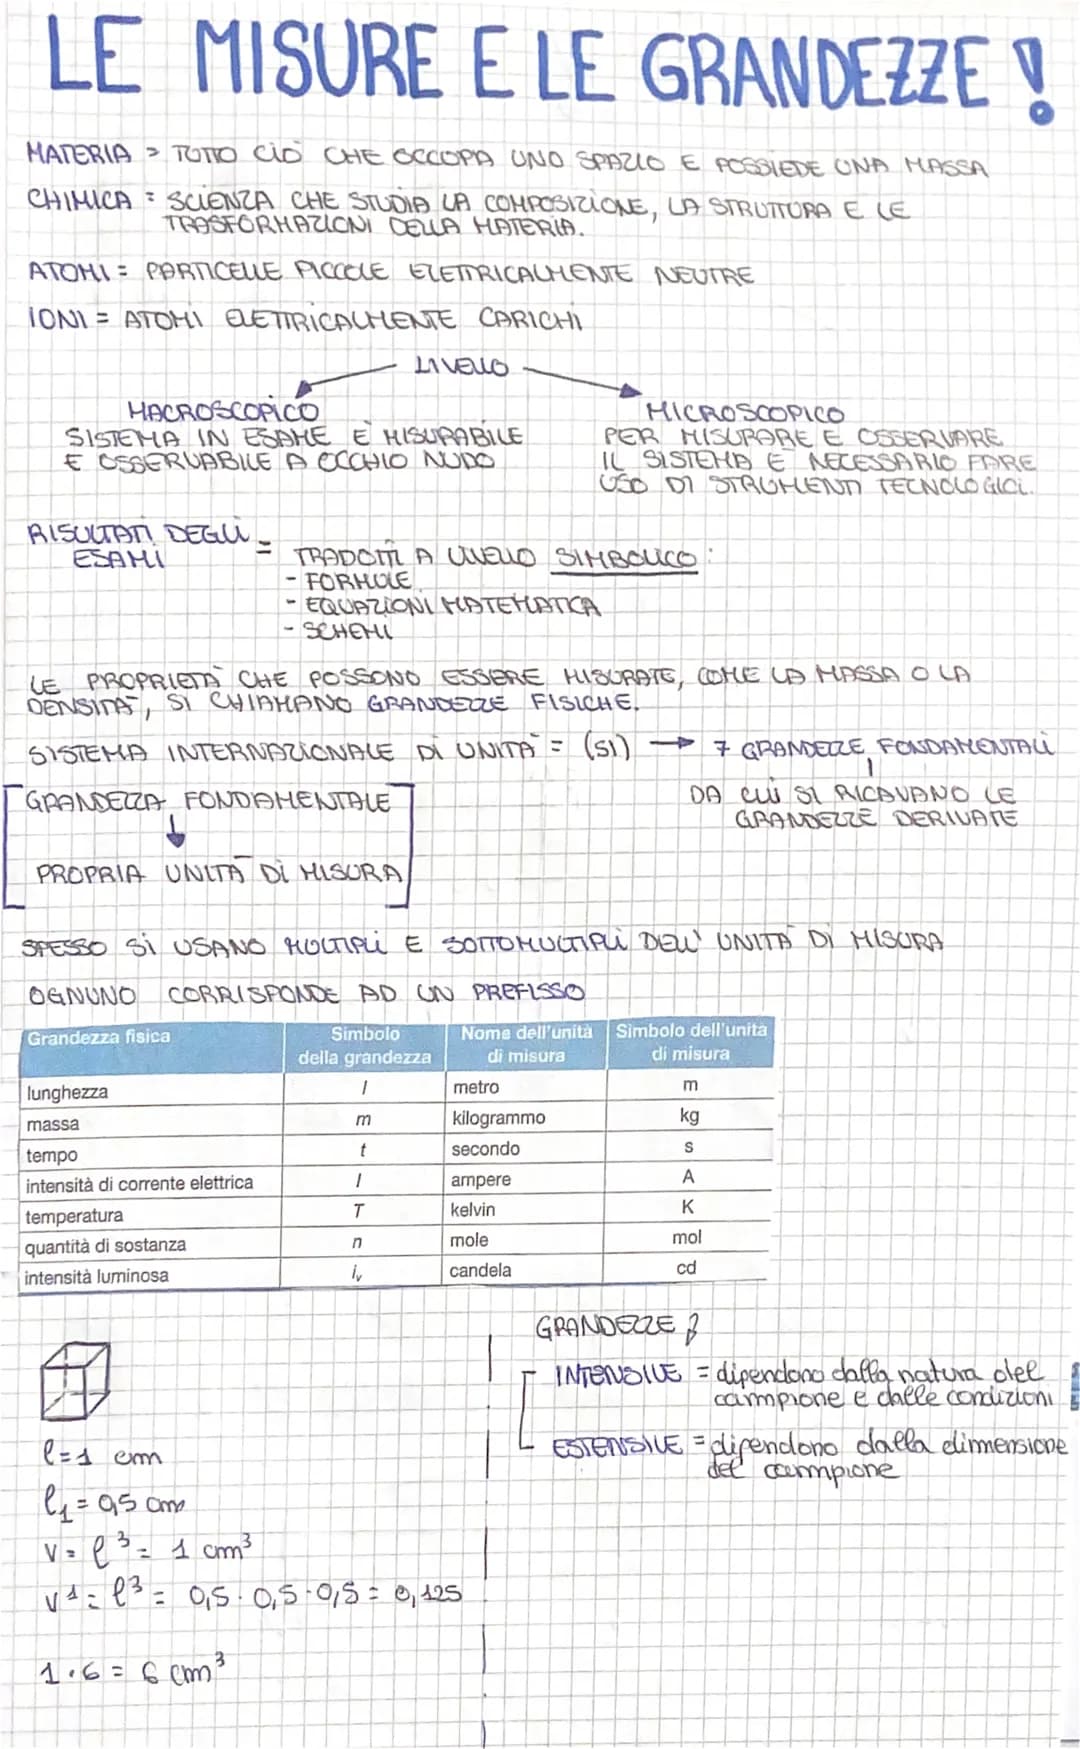 LE MISURE E LE GRANDEZZE !
MATERIA > TUTTO CIÒ CHE OCCUPA UNO SPAZIO E POSSIEDE UNA MASSA
CHIMICA = SCIENZA CHE STUDIA LA COMPOSIZIONE, LA STRUTTURA E LE
TRASFORMAZIONI DELLA MATERIA.
ATOMI = PARTICELLE PICCOLE ELETTRICALMENTE NEUTRE
IONI = ATOMI ELETTRICALMENTE CARICHI
LIVELLO
MACROSCOPICO
SISTEMA IN ESAME È MISURABILE
E OSSERVABILE A OCCHIO NUDO
MICROSCOPICO
PER MISURARE E OSSERVARE
IL SISTEMA È NECESSARIO FARE
USO DI STRUMENTI TECNOLOGICI.
RISULTATI DEGLI
ESAMI = TRADOTTI A LIVELLO SIMBOLICO:
- FORMULE
- EQUAZIONI MATEMATICA
- SCHEMI
LE PROPRIETÀ CHE POSSONO ESSERE MISURATE, COME LA MASSA O LA
DENSITÀ, SI CHIAMANO GRANDEZZE FISICHE.
SISTEMA INTERNAZIONALE DI UNITÀ = (SI) → 7 GRANDEZZE FONDAMENTALI
DA CUI SI RICAVANO LE
GRANDEZZE DERIVATE
GRANDEZZA FONDAMENTALE
↓
PROPRIA UNITÀ DI MISURA
SPESSO SI USANO MULTIPLI E SOTTOMULTIPLI DELL' UNITÀ DI MISURA
OGNUNO CORRISPONDE AD UN PREFISSO
Grandezza fisica Simbolo della grandezza Nome dell'unità di misura Simbolo dell'unità di misura
lunghezza l metro m
massa m kilogrammo kg
tempo t secondo s
intensità di corrente elettrica I ampere A
temperatura T kelvin K
quantità di sostanza n mole mol
intensità luminosa iv candela cd
l = 1 cm
l₁ = 0,5 cm
V = l³ = 1 cm³
V¹ = l³ = 0,5 · 0,5 · 0,5 = 0,125
1 · 6 = 6 cm³
GRANDEZZE
INTENSIVE = dipendono dalla natura del
campione e dalle condizioni
ESTENSIVE = dipendono dalla dimmensione
del campione